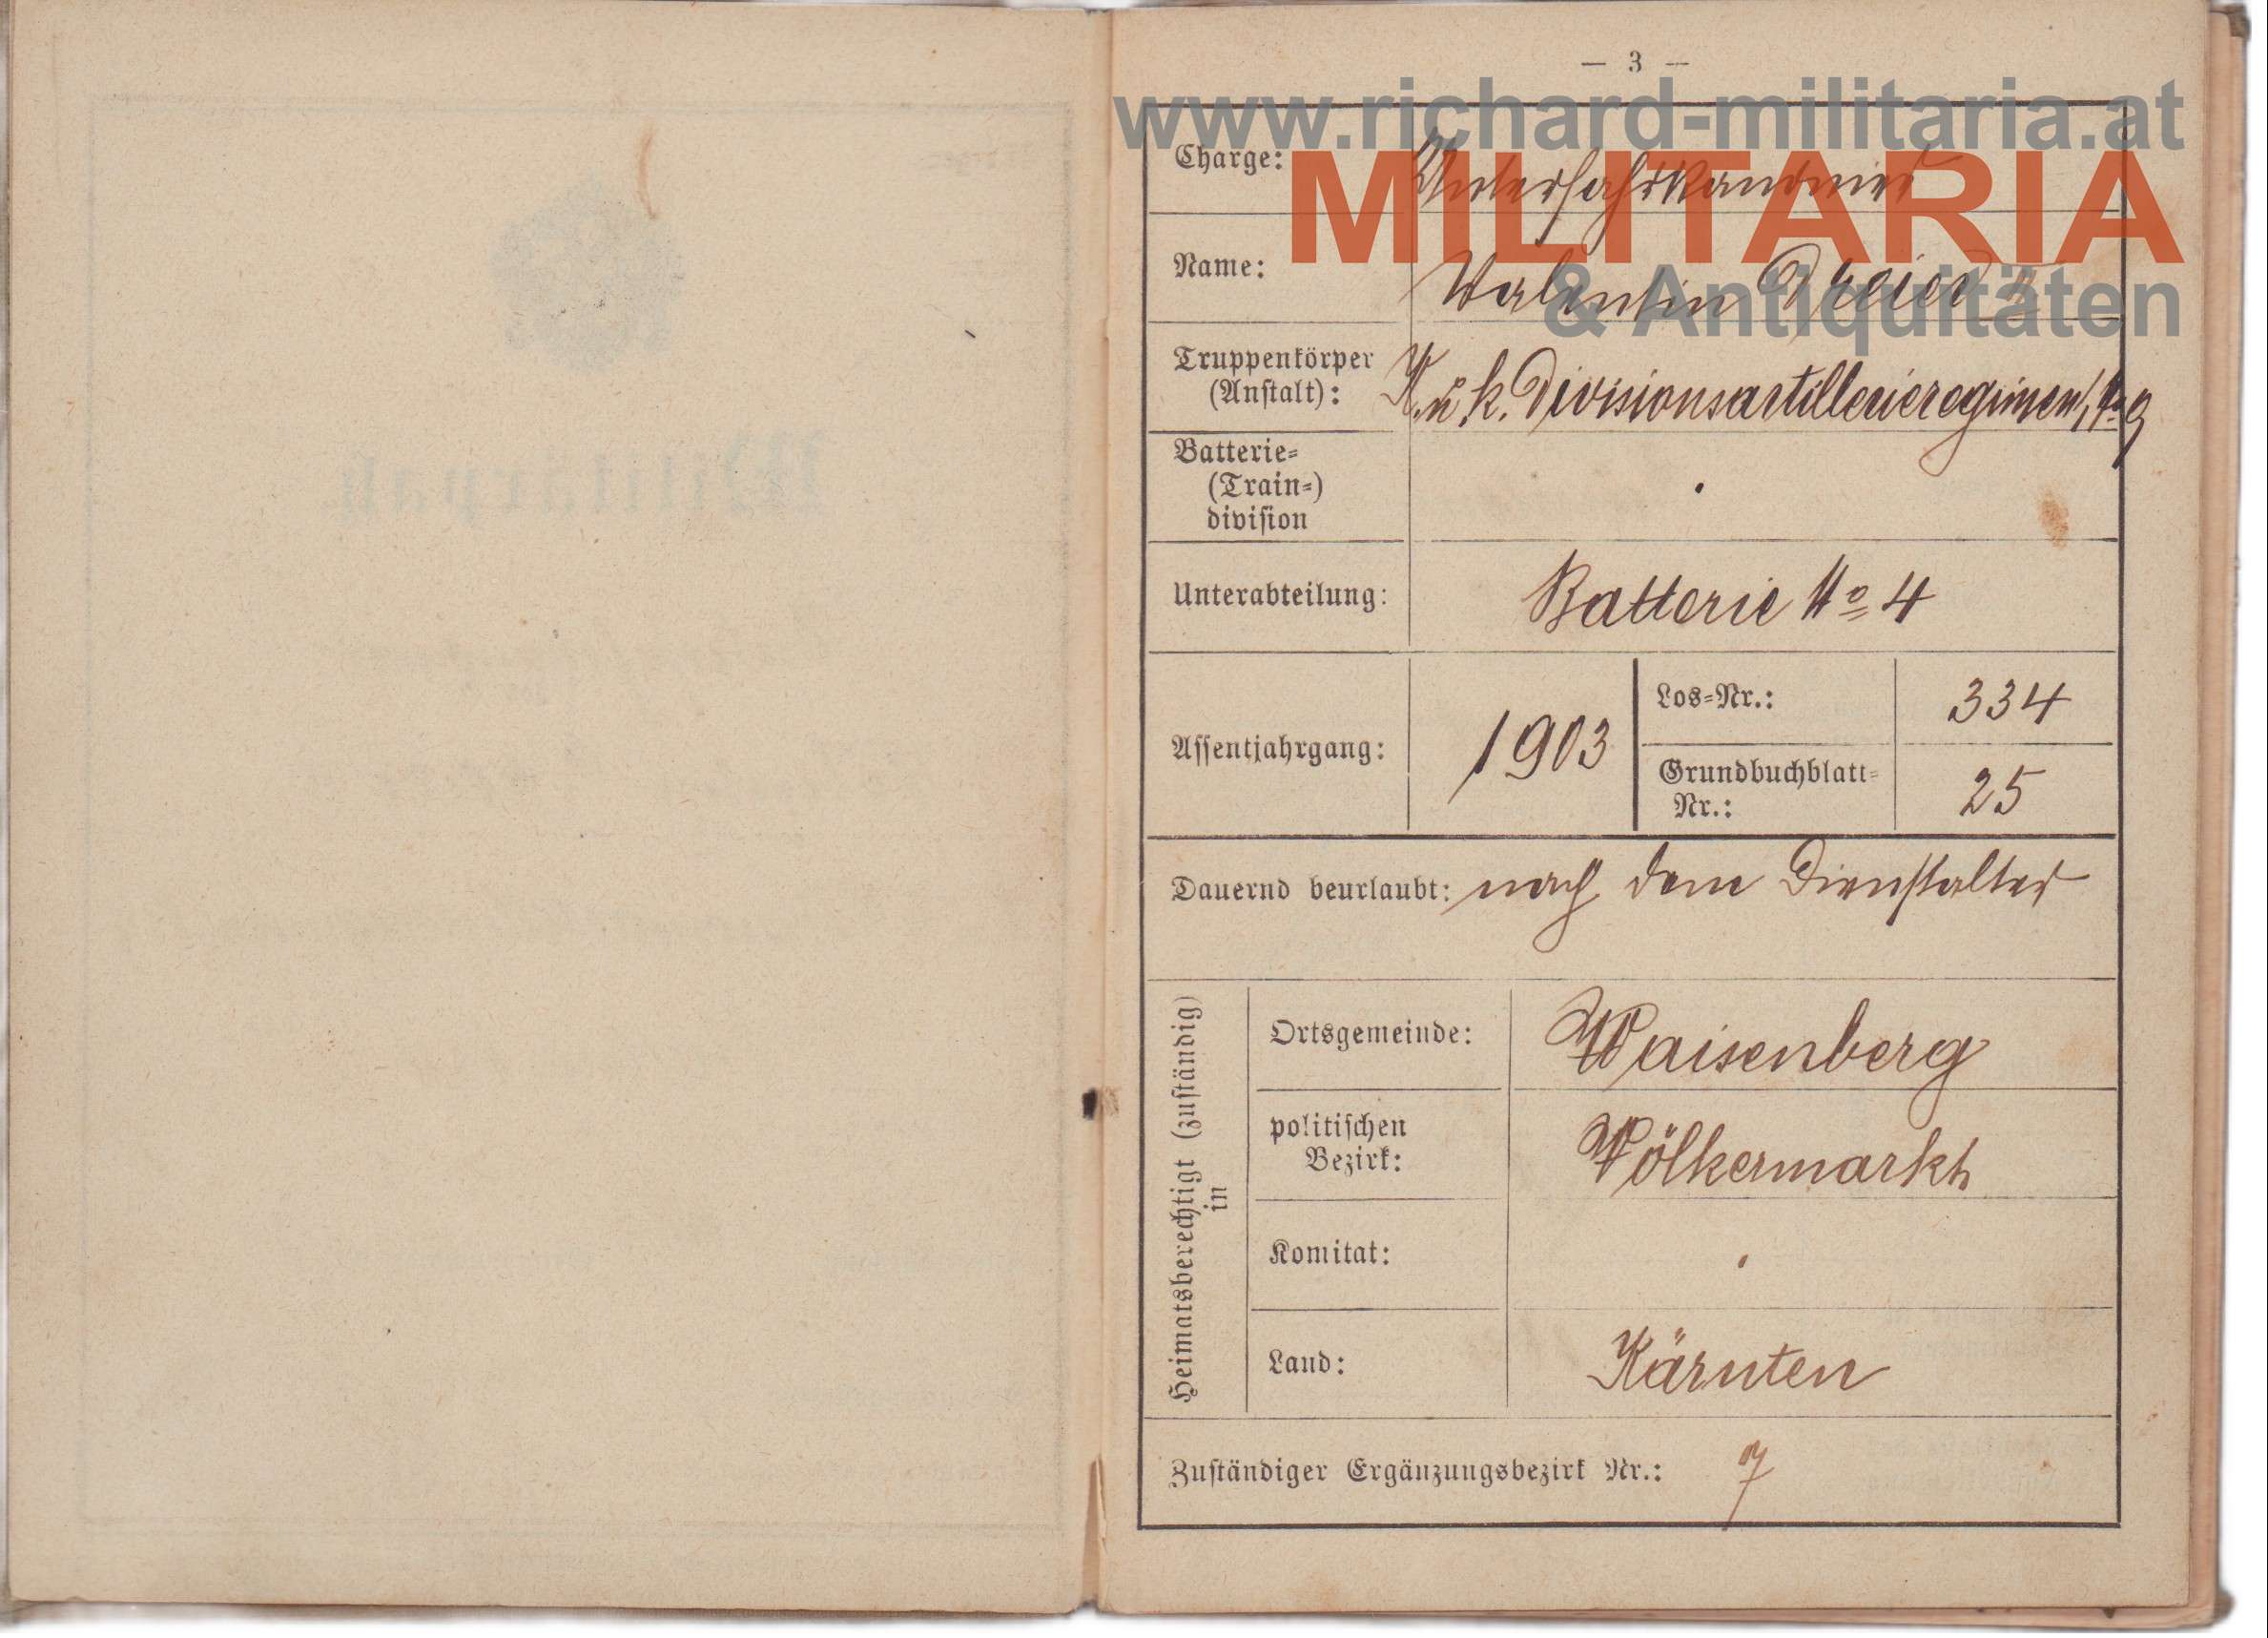 — 3 —
www.richard-militaria.at
MILITARIA
& Antiquitäten
Charge: Unterfahrkanonier
Name: Valentin
Truppenkörper
(Anstalt): K. u. k. Divisionsartillerieregiment No 9
Batterie-
(Train-)
division
Unterabteilung: Batterie No 4
Assentjahrgang: 1903
Los-Nr.: 334
Grundbuchblatt-
Nr.: 25
Dauernd beurlaubt: nach dem Dienstalter
Heimatsberechtigt (zuständig)
in
Ortsgemeinde: Waisenberg
politischen
Bezirk: Völkermarkt
Komitat:
Land: Kärnten
Zuständiger Ergänzungsbezirk Nr.: 7
Militärpaß.